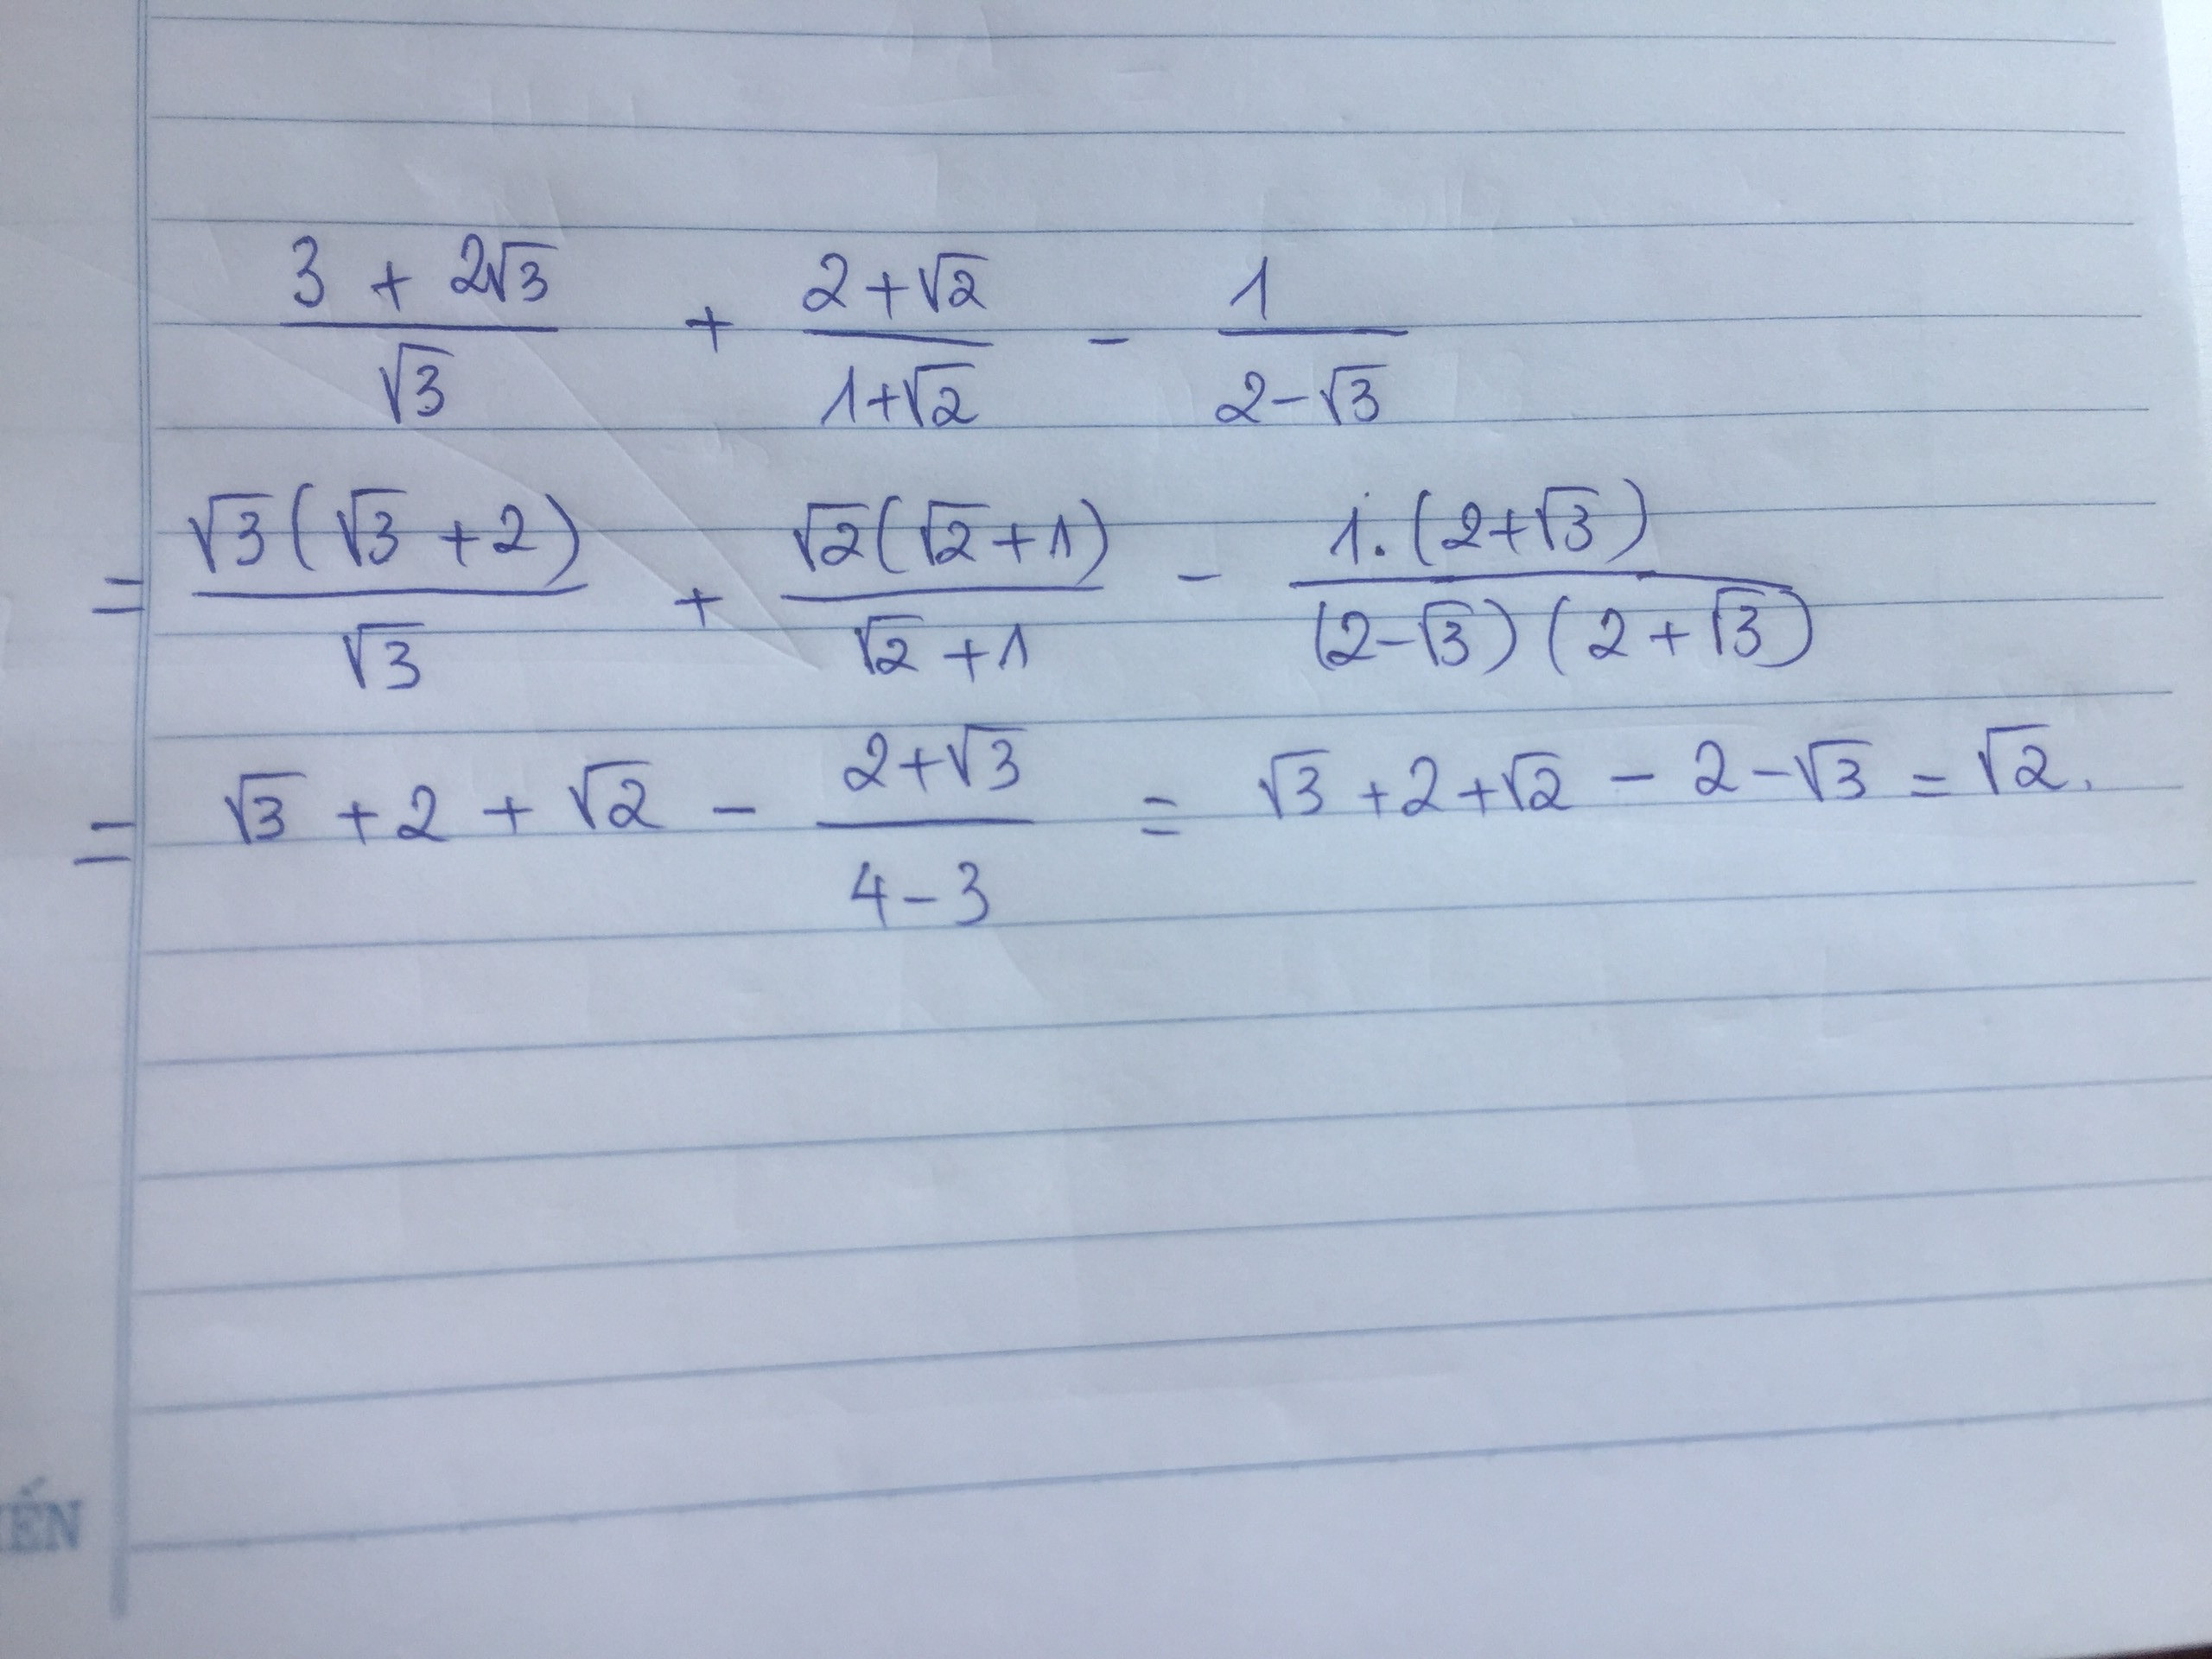 \frac{3+2\sqrt{3}}{\sqrt{3}} + \frac{2+\sqrt{2}}{1+\sqrt{2}} - \frac{1}{2-\sqrt{3}}
= \frac{\sqrt{3}(\sqrt{3}+2)}{\sqrt{3}} + \frac{\sqrt{2}(\sqrt{2}+1)}{\sqrt{2}+1} - \frac{1.(2+\sqrt{3})}{(2-\sqrt{3})(2+\sqrt{3})}
= \sqrt{3}+2+\sqrt{2} - \frac{2+\sqrt{3}}{4-3} = \sqrt{3}+2+\sqrt{2}-2-\sqrt{3} = \sqrt{2}.